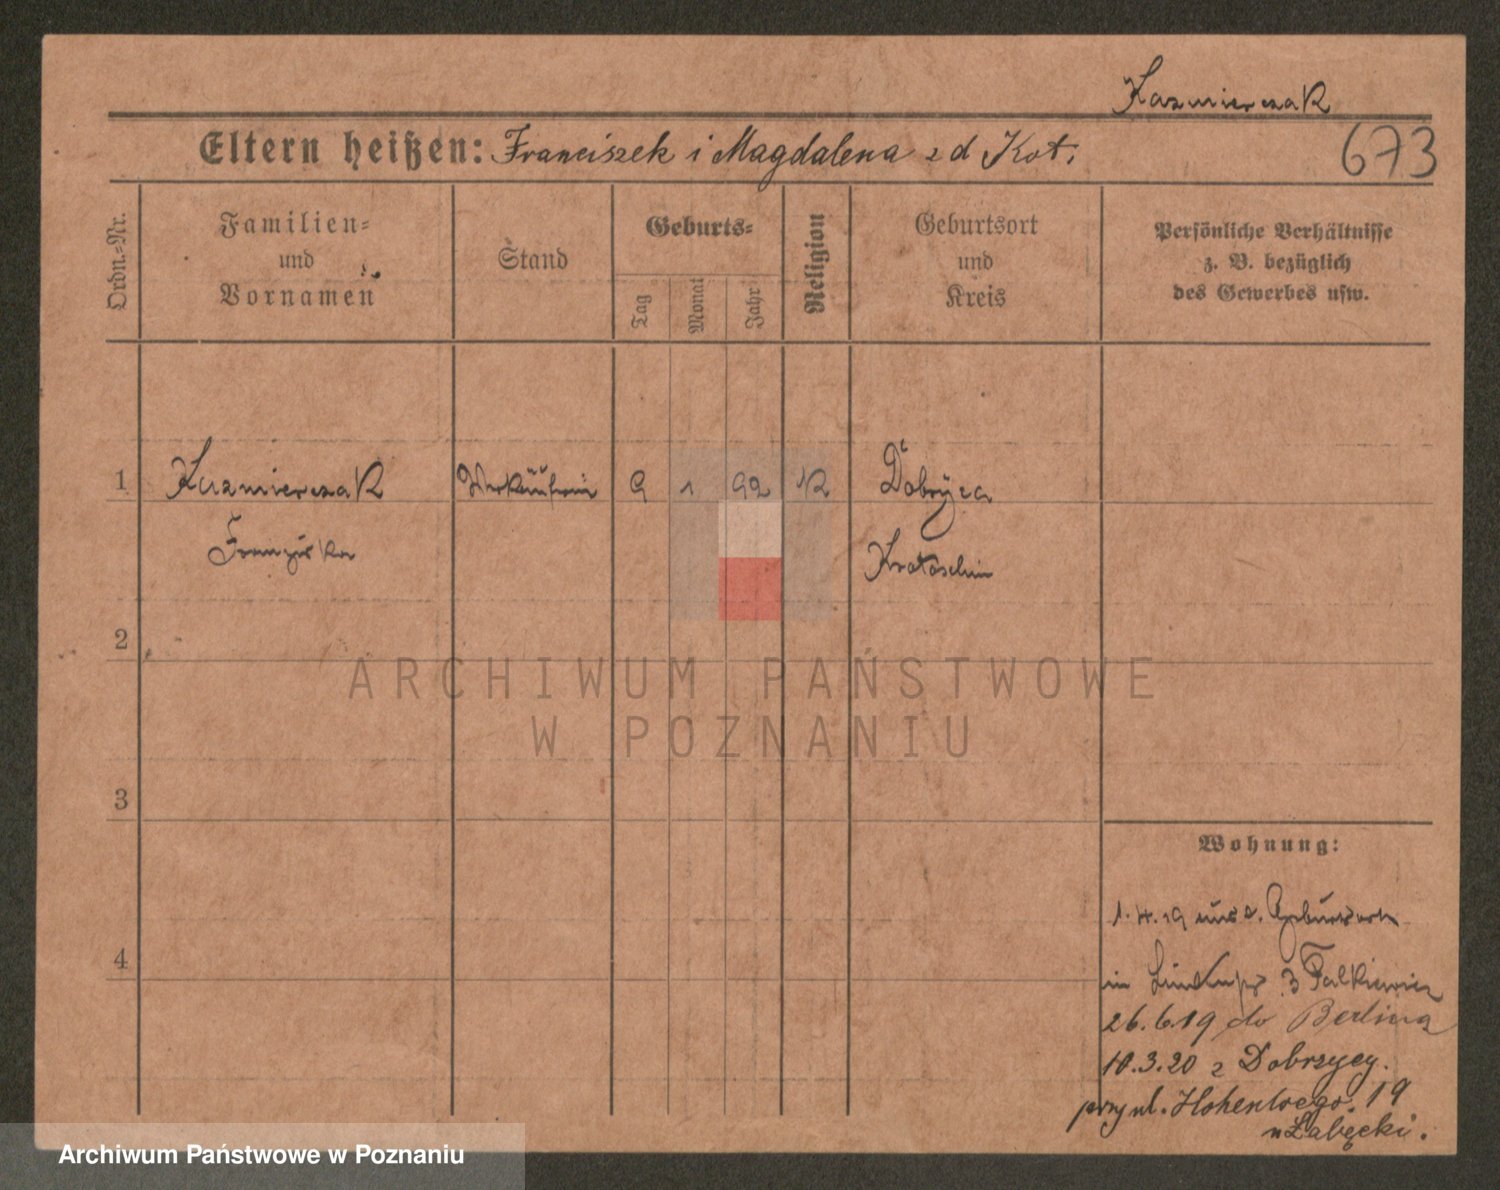 Kazmierczak
Eltern heißen: Franciszek i Magdalena z d Kot.
673
Ordn.-Nr.
Familien-
und
Vornamen
Stand
Geburts-
Tag
Monat
Jahr
Religion
Geburtsort
und
Kreis
Persönliche Verhältnisse
z. B. bezüglich
des Gewerbes usw.
1 Kazmierczak Verkäuferin 9 1 92 K Dobrÿca
Franziska Krotoschin
2
3
4
ARCHIWUM PAŃSTWOWE
W POZNANIU
Wohnung:
1.4.19 aus Geburtsort
in 3 Falkiewicz
26.6.19 do Berlina
10.3.20 z Dobrzycy.
przy ul. Hohenloego. 19
u Łabęcki.
Archiwum Państwowe w Poznaniu